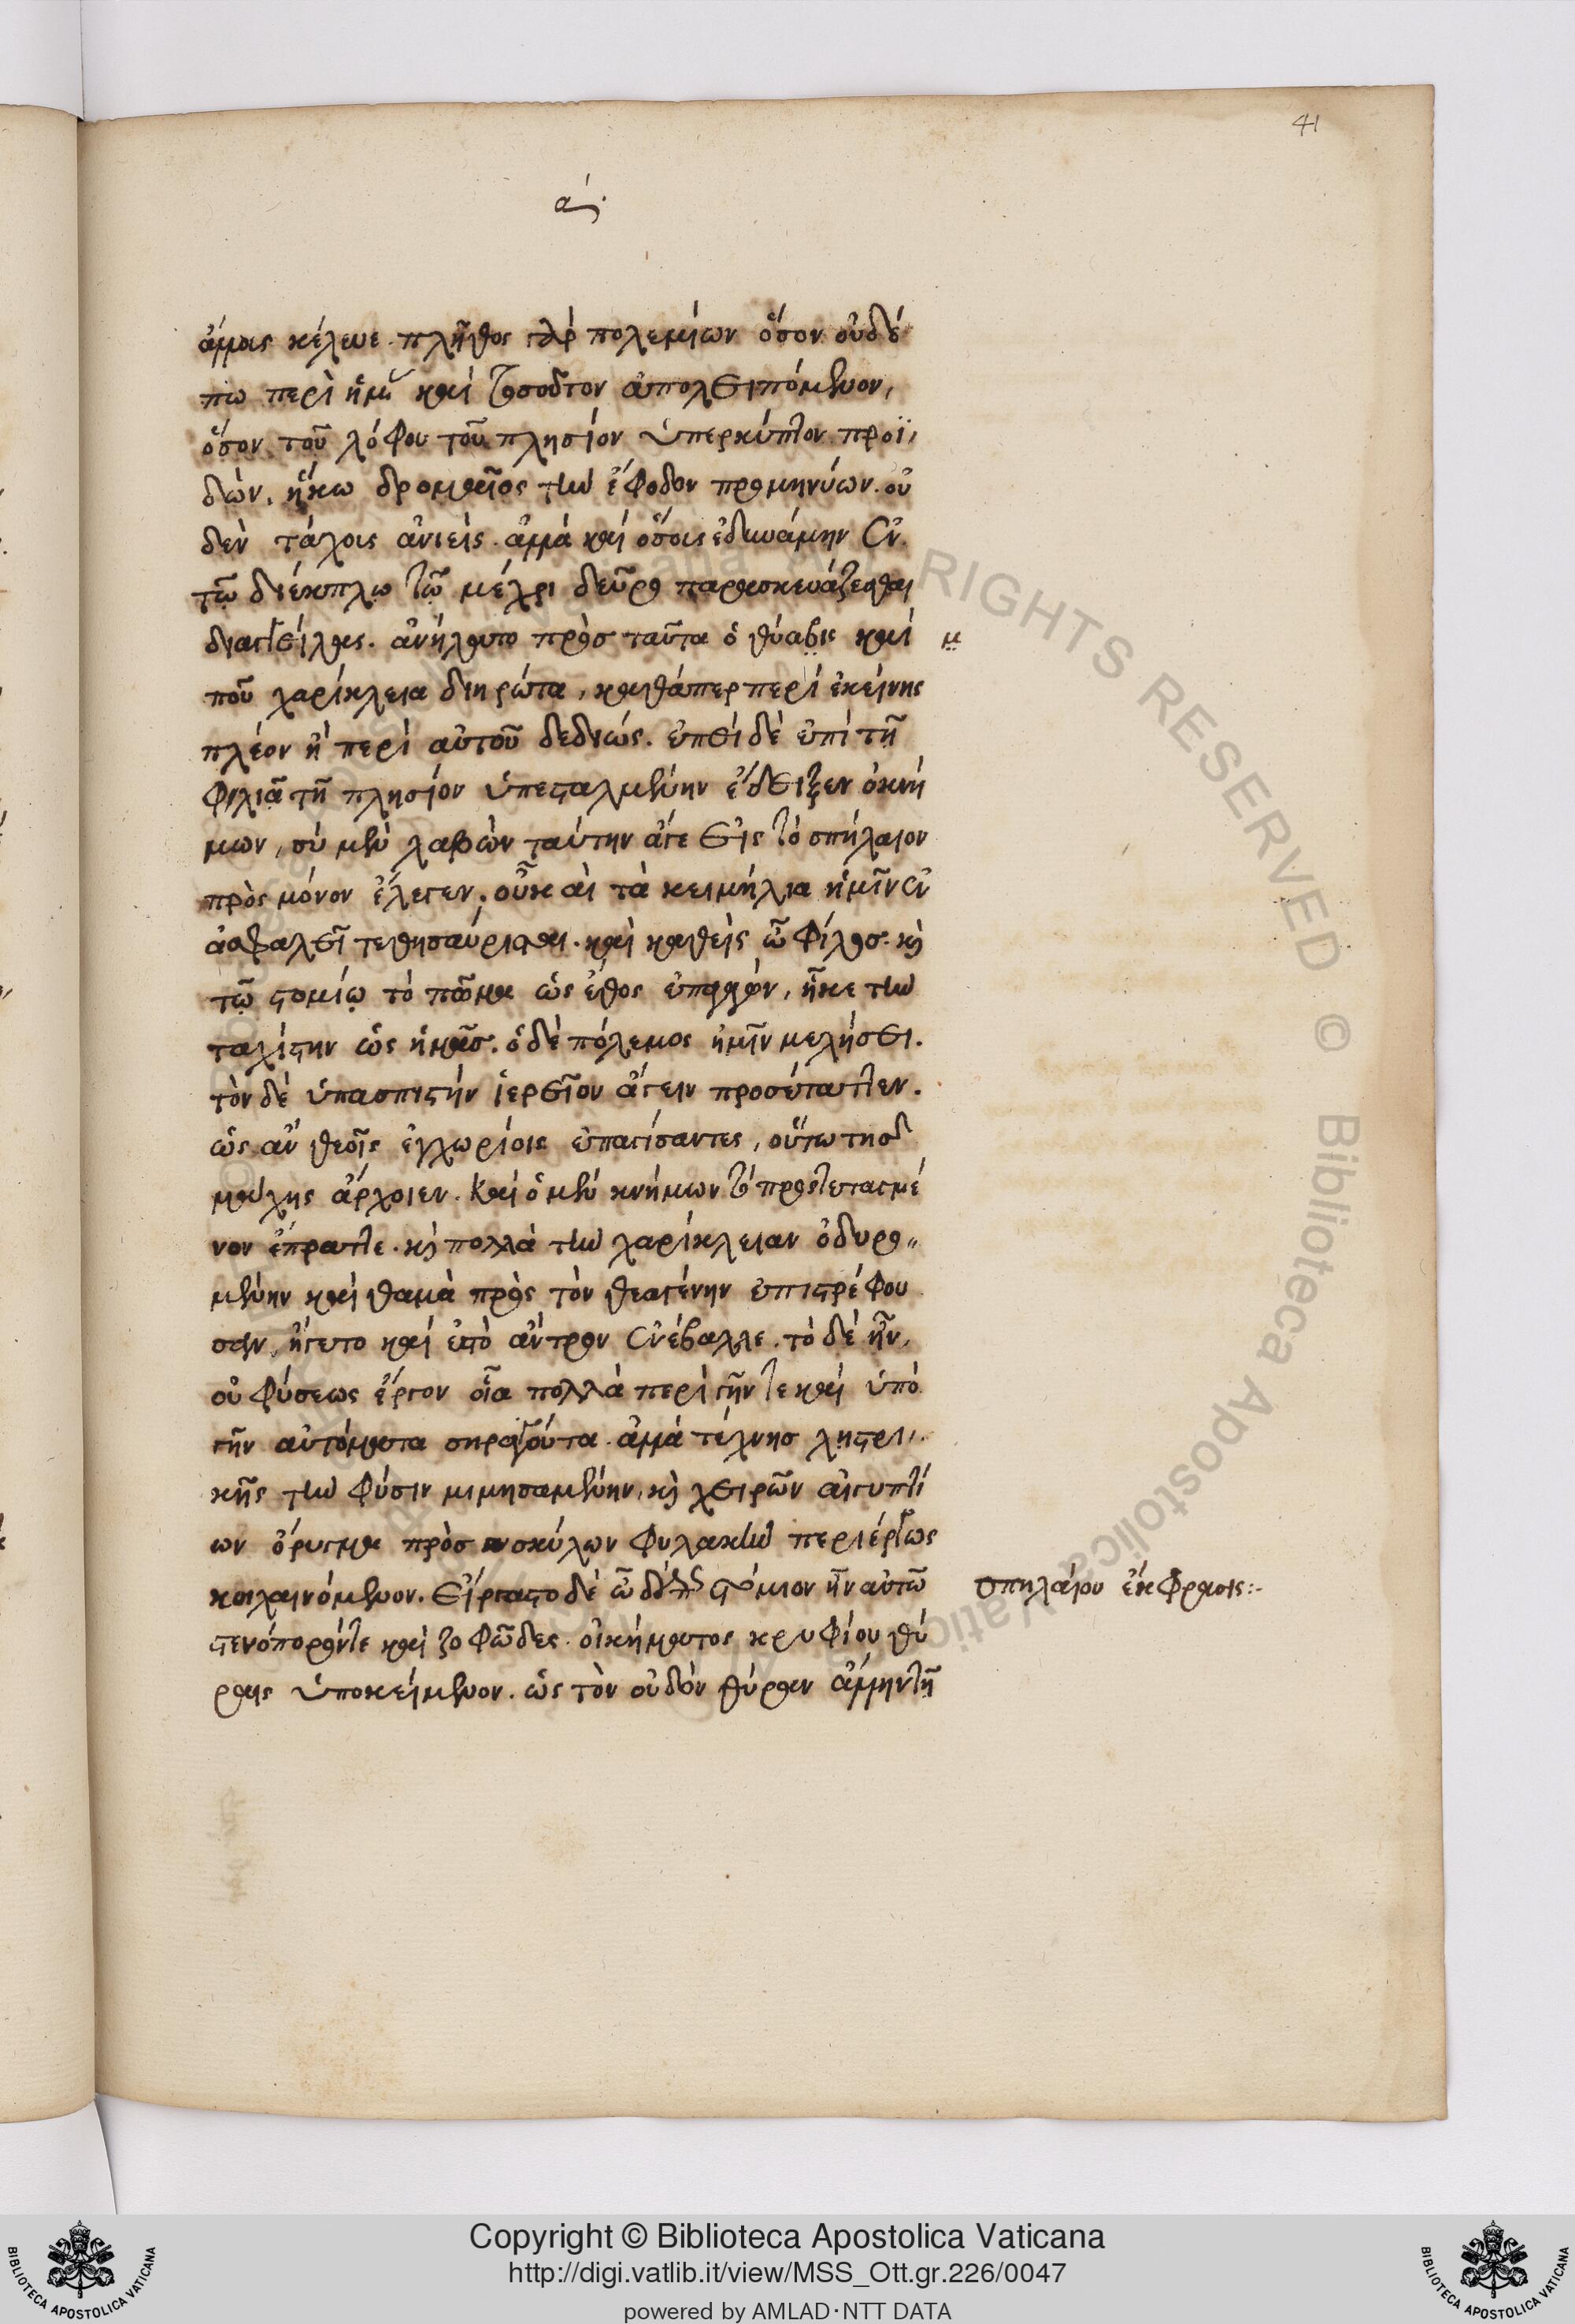 41
α΄.
ἄλλοις κέλευε. πλῆθος γὰρ πολεμίων ὅσον οὐδέ
πω περὶ ἡμᾶς καὶ τοσοῦτον ἀπολειπόμενον,
ὅσον τοῦ λόφου τοῦ πλησίον ὑπερκύπτον προϊ,
δὼν, ἥκω δρομαῖος τὴν ἔφοδον προμηνύων. οὐ
δὲν τάχους ἀνιεὶς. ἀλλὰ καὶ ὅσοις ἐδυνάμην ἐν
τῷ διέκπλω τῷ μέχρι δεῦρο παρασκευάζεσθαι
διαγγείλας. ἀνήλλετο πρὸσ ταῦτα ὁ θύαμις καὶ μ
ποῦ χαρίκλεια διηρώτα, καθάπερ περὶ ἐκείνης
πλέον ἢ περὶ αὐτοῦ δεδιώς. ἐπεὶ δὲ ἐπὶ τῇ
φλιᾷ τῇ πλησίον ὑπεσταλμένην ἔδειξεν ὁ κνή
μων, σὺ μὲν λαβὼν ταύτην ἄγε εἰς τὸ σπήλαιον
πρὸς μόνον ἔλεγεν. οὗ καὶ τὰ κειμήλια ἡμῖν ἐν
ἀσφαλεῖ τεθησαύρισται. καὶ καθεὶς ὦ φίλοσ. καὶ
τῷ στομίῳ τὸ πῶμα ὡς ἔθος ἐπαγαγών, ἧκε τὴν
ταχίστην ὡς ἡμᾶσ. ὁ δὲ πόλεμος ἡμῖν μελήσει.
τὸν δὲ ὑπασπιστὴν ἱερεῖον ἄγειν προσέταττεν.
ὡς ἂν θεοῖς ἐγχωρίοις ἐναγίσαντες, οὕτω τῆσ
μάχης ἄρχοιεν. Καὶ ὁ μὲν κνήμων τὸ προστεταγμέ
νον ἔπραττε. καὶ πολλὰ τὴν χαρίκλειαν ὀδυρο„
μένην καὶ θαμὰ πρὸς τὸν θεαγένην ἐπιστρέφου
σαν, ἤγετο καὶ ἐπὸ ἄντρον ἐνέβαλλε. τὸ δὲ ἦν,
οὐ φύσεως ἔργον οἷα πολλὰ περὶ γῆν τε καὶ ὑπὸ
γῆν αὐτόματα σηραγγοῦται. ἀλλὰ τέχνησ λῃστρι,
κῆς τὴν φύσιν μιμησαμένην, καὶ χειρῶν αἰγυπτί
ων ὄρυγμα πρὸσ σκύλων φυλακὴν περιέργως
κοιλαινόμενον. εἴργαστο δὲ ὧδέ πως στόμιον ἦν αὐτῷ
στενόπορόν τε καὶ ζοφῶδες. οἰκήματος κρυφίου θύ
ραις ὑποκείμενον. ὡς τὸν οὐδὸν θύραν ἄλλην τῇ
σπηλαίου ἔκφρασις:-
RIGHTS RESERVED © Biblioteca Apostolica Vaticana
Copyright © Biblioteca Apostolica Vaticana
http://digi.vatlib.it/view/MSS_Ott.gr.226/0047
powered by AMLAD·NTT DATA
BIBLIOTECA APOSTOLICA VATICANA
BIBLIOTECA APOSTOLICA VATICANA